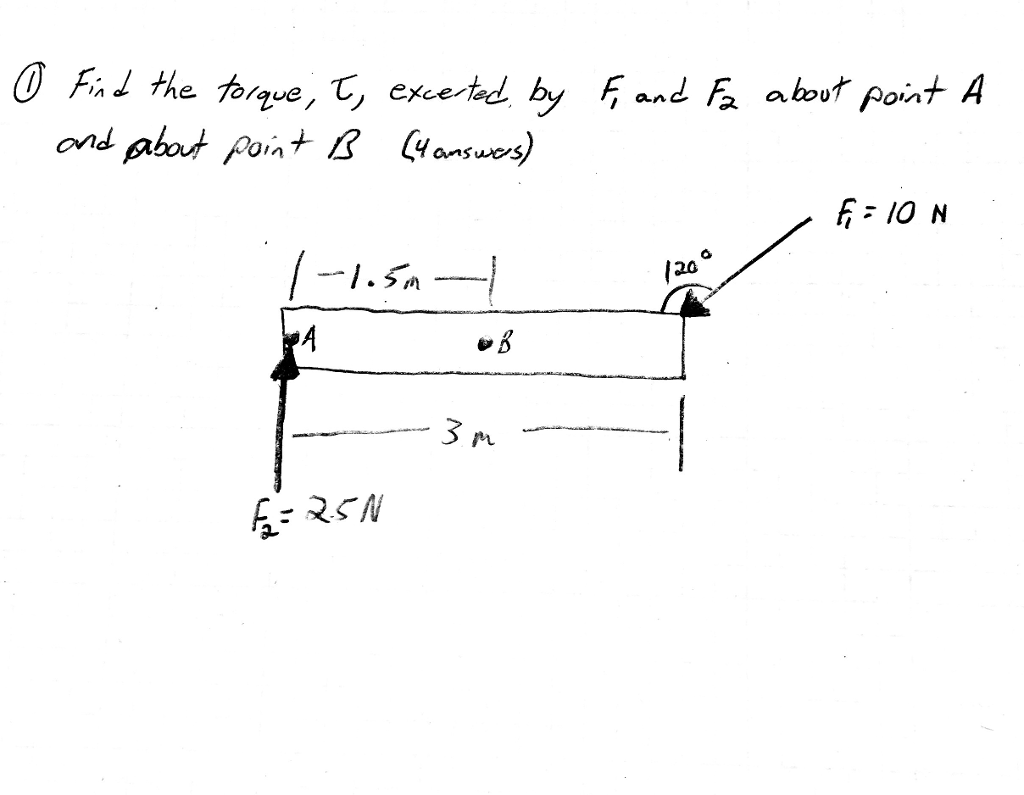 ① Find the torque, τ, excerted by F₁ and F₂ about point A
and about point B (4 answers)
F₁ = 10 N
1.5m
120°
A
B
3 m
F₂ = 25 N